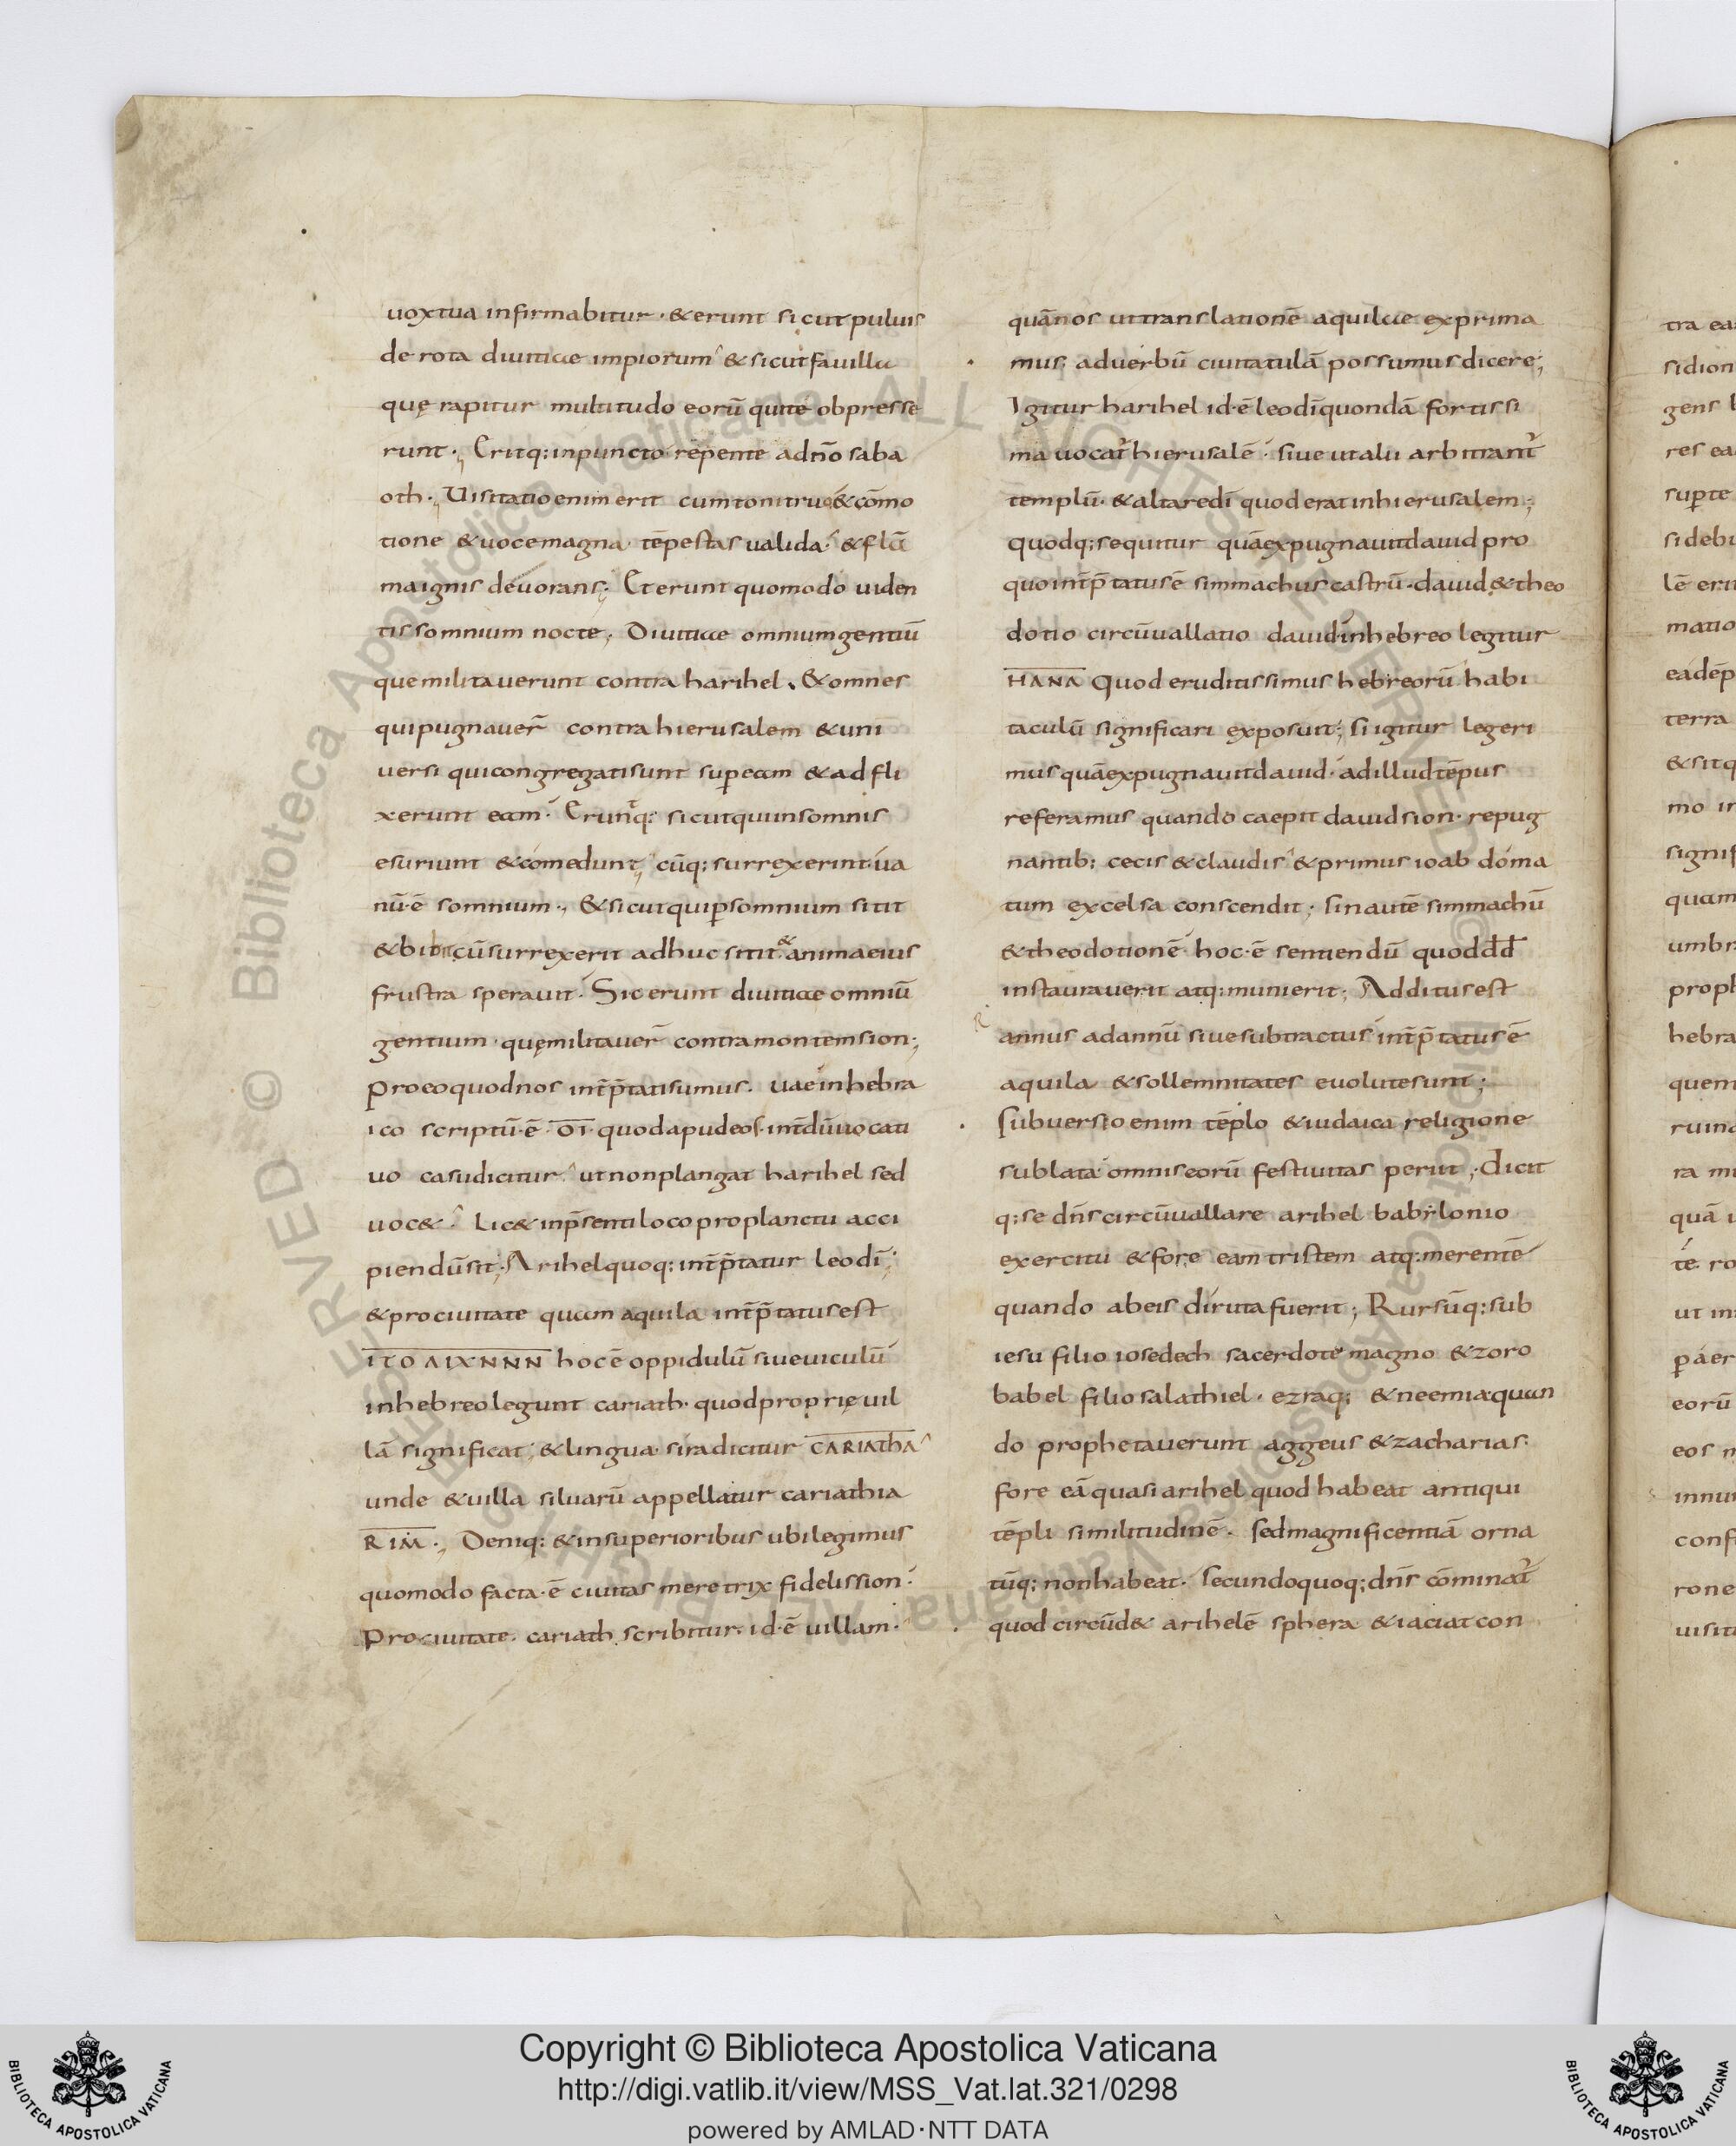 uox tua infirmabitur · & erunt sicut puluis
de rota diuitiae impiorum & sicut fauilla
quę rapitur multitudo eorū qui te obpresse
runt · Eritq: in puncto repente a dn̄o saba
oth · Uisitatio enim erit cum tonitruo & cōmo
tione & uoce magna tēpestas ualida & flā
ma ignis deuorans; Et erunt quomodo uiden
tis somnium nocte; Diuitiae omnium gentiū
que militauerunt contra harihel · & omnes
qui pugnauer̄ contra hierusalem & uni
uersi qui congregati sunt sup eam & adfli
xerunt eam · Erunt̄q: sicut qui in somnis
esuriunt & comedunt cūq: surrexerint ua
nū ē somnium · & sicut qui p somnium sitit
& bibit cū surrexerit adhuc sitit & anima eius
frustra sperauit · Sic erunt diuitiae omniū
gentium quę militauer̄ contra montem sion;
Pro eo quod nos int̄p̄tati sumus · uae in hebra
ico scriptū ē · OI · quod apud eos int̄dū uocati
uo casu dicitur ut non plangat harihel sed
uoc& · Lic& in p̄senti loco pro planctu acci
piendū sit; Arihel quoq: int̄p̄tatur leo dī
& pro ciuitate quam aquila int̄p̄tatus est
ITOΛIXNNN hoc ē oppidulū siue uiculū
in hebreo legunt cariath · quod proprię uil
lā significat; & lingua sira dicitur CARIATHA
unde & uilla siluarū appellatur cariathia
RIM · Deniq: & in superioribus ubi legimus
quomodo facta · ē ciuitas meretrix fidelis sion
Pro ciuitate · cariath scribitur · id · ē uillam ·
quā nos ut translationē aquilae exprima
mus · ad uerbū ciuitatulā possumus dicere;
Igitur harihel id · ē leo dī quondā fortissi
ma uocat̄ hierusalē · siue ut alii arbitrant̄
templū · & altare dī quod erat in hierusalem;
quodq: sequitur quā expugnauit dauid pro
quo int̄p̄tatus ē simmachus castrū · dauid & theo
dotio circūuallatio dauid in hebreo legitur
HANA Quod eruditissimus hebreorū habi
taculū significari exposuit; si igitur legeri
mus quā expugnauit dauid · ad illud tēpus
referamus quando caepit dauid sion · repug
nantib: cecis & claudis & primus ioab doma
tum excelsa conscendit; sin autē simmachū
& theodotionē hoc · ē sentiendū quod dd̄
instaurauerit atq: munierit; Additus est
annus ad annū siue subtractus int̄p̄tatus ē
aquila & sollemnitates euolute sunt;
Subuerso enim tēplo & iudaica religione
sublata omnis eorū festiuitas periit; dicit
q: se dn̄s circūuallare arihel babylonio
exercitu & fore eam tristem atq: merentē
quando ab eis diruta fuerit; Rursūq: sub
iesu filio iosedech sacerdote magno & zoro
babel filio salathiel · ezraq: & neemia quan
do prophetauerunt aggeus & zacharias ·
fore eā quasi arihel quod habeat antiqui
tēpli similitudinē · sed magnificentiā orna
tūq: non habeat · secundo quoq: dn̄s cōminat̄
quod circūd& arihelē sphera & iaciat con
tra ea
sidion
gens
res ea
supte
si deb
lē eru
matio
eadēp
terra
& sit q
mo in
signif
quam
umbr
proph
hebra
quem
ruina
ra m
quā
tē ro
ut in
paer
eorū
eos
innu
conf
rone
uisit
© Biblioteca Apostolica Vaticana ALL RIGHTS RESERVED
Copyright © Biblioteca Apostolica Vaticana
http://digi.vatlib.it/view/MSS_Vat.lat.321/0298
powered by AMLAD·NTT DATA
BIBLIOTECA APOSTOLICA VATICANA
BIBLIOTECA APOSTOLICA VATICANA